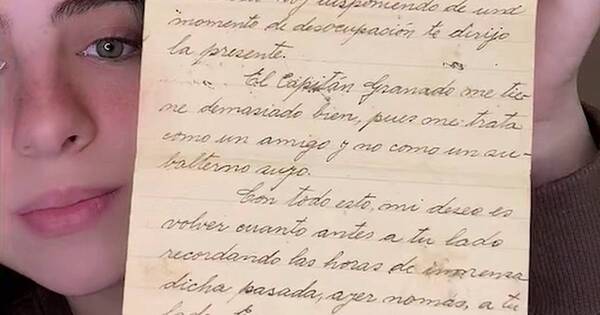 hoy disponiendo de un
momento de desocupación te dirijo
la presente.
El Capitán Granado me tie-
ne demasiado bien, pues me trata
como un amigo y no como un su-
balterno suyo.
Con todo esto, mi deseo es
volver cuanto antes a tu lado
recordando las horas de inmensa
dicha pasada, ayer nomás, a tu
lado.